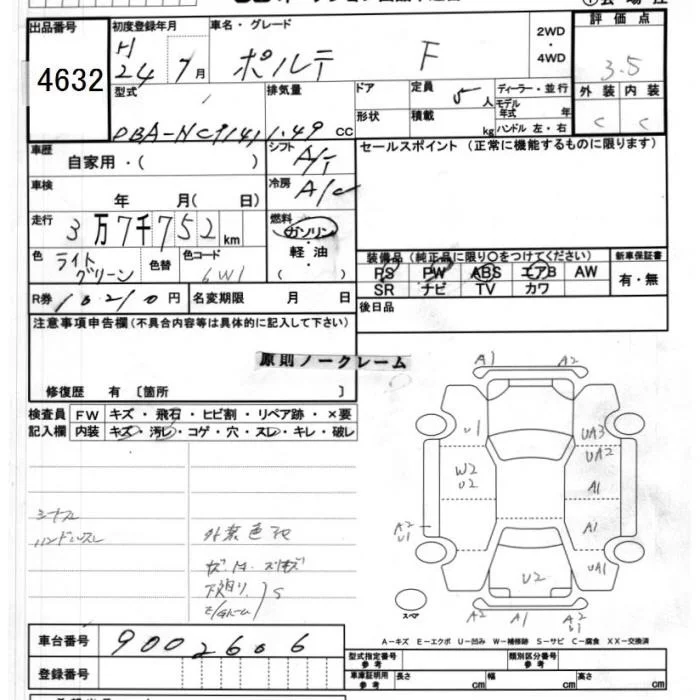 出品番号
4632
初度登録年月
H
24 7月
車名・グレード
ポルテ F
2WD
・
4WD
評価点
3.5
外装 内装
C C
型式
DBA-NCP141
排気量
1.49 CC
ドア
形状
定員
5人
積載
kg
ディーラー・並行
モデル年式 年
ハンドル 左・右
車歴
自家用・( )
シフト
A/T
車検
年 月( 日)
冷房
A/C
走行
3万7千752km
燃料
ガソリン
・
軽油
( )
色
ライト
グリーン
色替
色コード
6W1
R券
10210円
名変期限 月 日
セールスポイント (正常に機能するものに限ります)
装備品 (純正品に限り○をつけてください)
PS PW ABS エアB AW
SR ナビ TV カワ
新車保証書
有・無
後日品
注意事項申告欄(不具合内容等は具体的に記入して下さい)
原則ノークレーム
修復歴 有 〔箇所 〕
検査員
記入欄
FW キズ・飛石・ヒビ割・リペア跡・×要
内装 キズ・汚レ・コゲ・穴・スレ・キレ・破レ
シートスレ
ハンドルスレ
A1 A2
U1 UA3
UA2
W2
U2 A1
A2
U1 A1
U2 UA1
スペア
A2 A1 A2
U1
A-キズ E-エクボ U-凹み W-補修跡 S-サビ C-腐食 XX-交換済
車台番号
9002606
登録番号
型式指定番号
参考
類別区分番号
参考
車庫証明用
参考
長さ cm
幅 cm
高さ cm